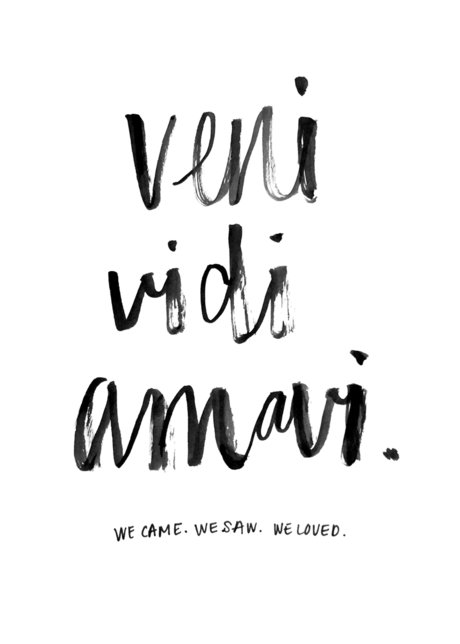 veni
vidi
amavi.
WE CAME. WE SAW. WE LOVED.